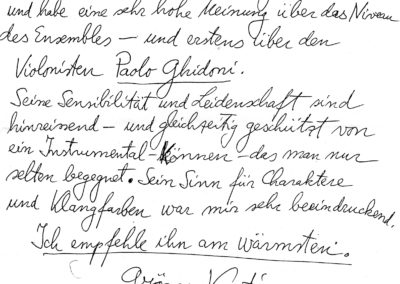 und habe eine sehr hohe Meinung über das Niveau
des Ensembles – und erstens über den
Violonisten Paolo Ghidoni.
Seine Sensibilität und Leidenschaft sind
hinreissend – und gleichzeitig geschützt von
ein Instrumental-Können – das man nur
selten begegnet. Sein Sinn für Charaktere
und Klangfarben war mir sehr beeindruckend.
Ich empfehle ihn am Wärmsten.